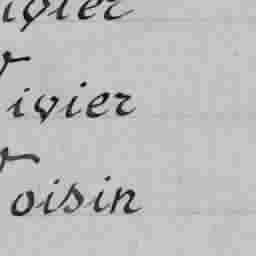 ivier
ivier
oisin